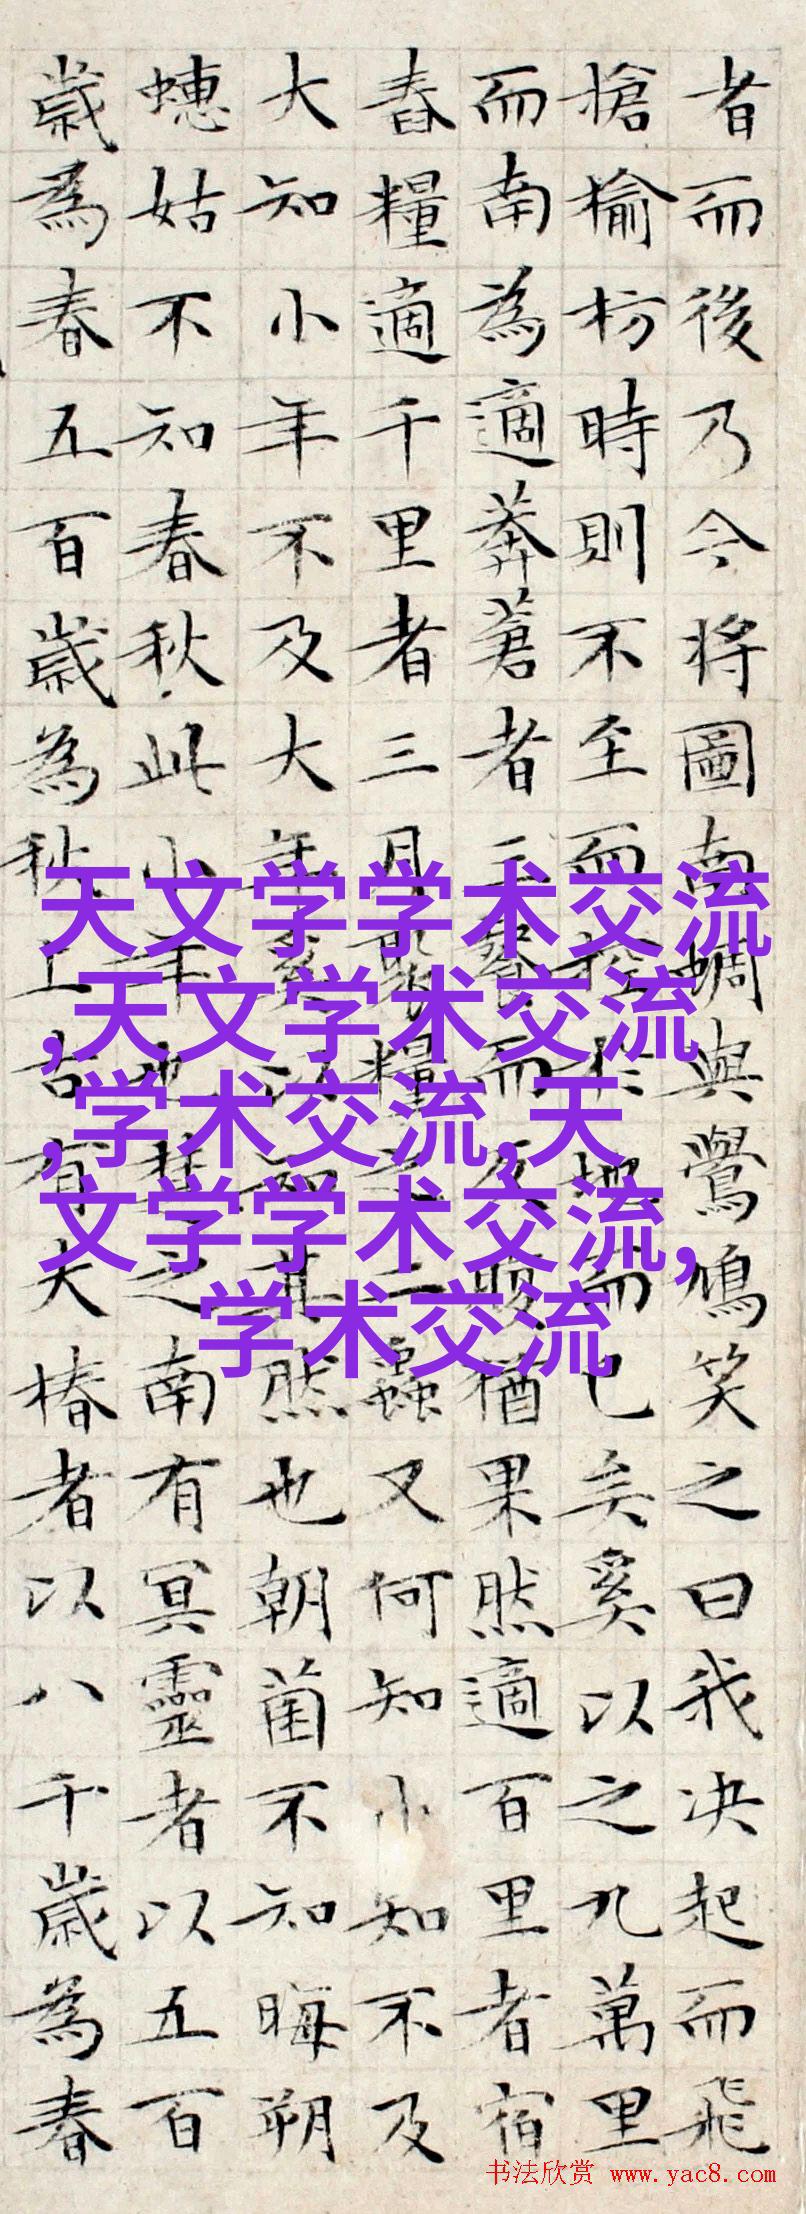 者而後乃今將圖南蜩與鷽鳩笑之曰我决起而飛
搶榆枋時則不至而控於地而已矣奚以之九萬里
而南為適莽蒼者三餐而反腹猶果然適百里者宿
舂糧適千里者三月聚糧之二蟲又何知小知不及
大知小年不及大年奚以知其然也朝菌不知晦朔
蟪蛄不知春秋此小年也楚之南有冥靈者以五百
歲為春五百歲為秋上古有大椿者以八千歲為春
天文学学术交流
,天文学术交流
,学术交流,天
文学学术交流,
学术交流
书法欣赏 www.yac8.com